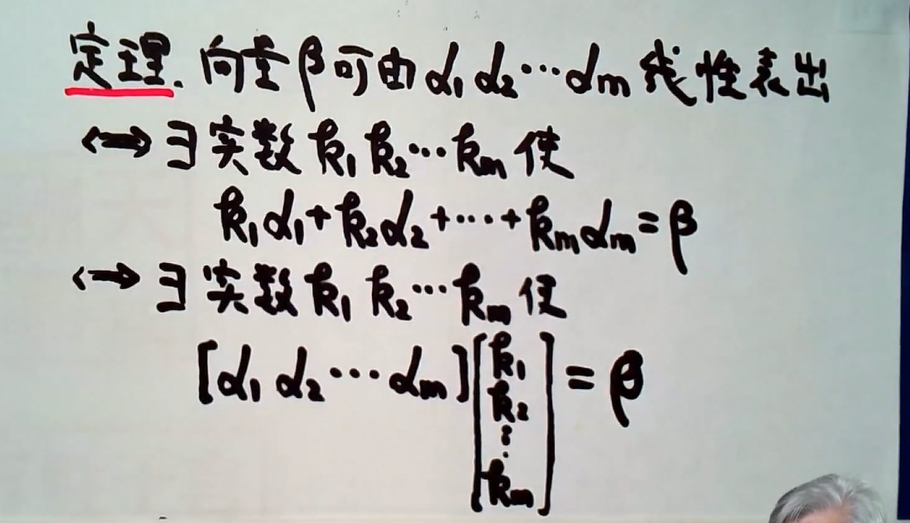 定理. 向量β可由α₁ α₂ ⋯ αm 线性表出
⟺ ∃ 实数 k₁ k₂ ⋯ km 使
k₁α₁+k₂α₂+⋯+kmαm=β
⟺ ∃ 实数 k₁ k₂ ⋯ km 使
[α₁ α₂ ⋯ αm][k₁ k₂ ⋮ km] = β